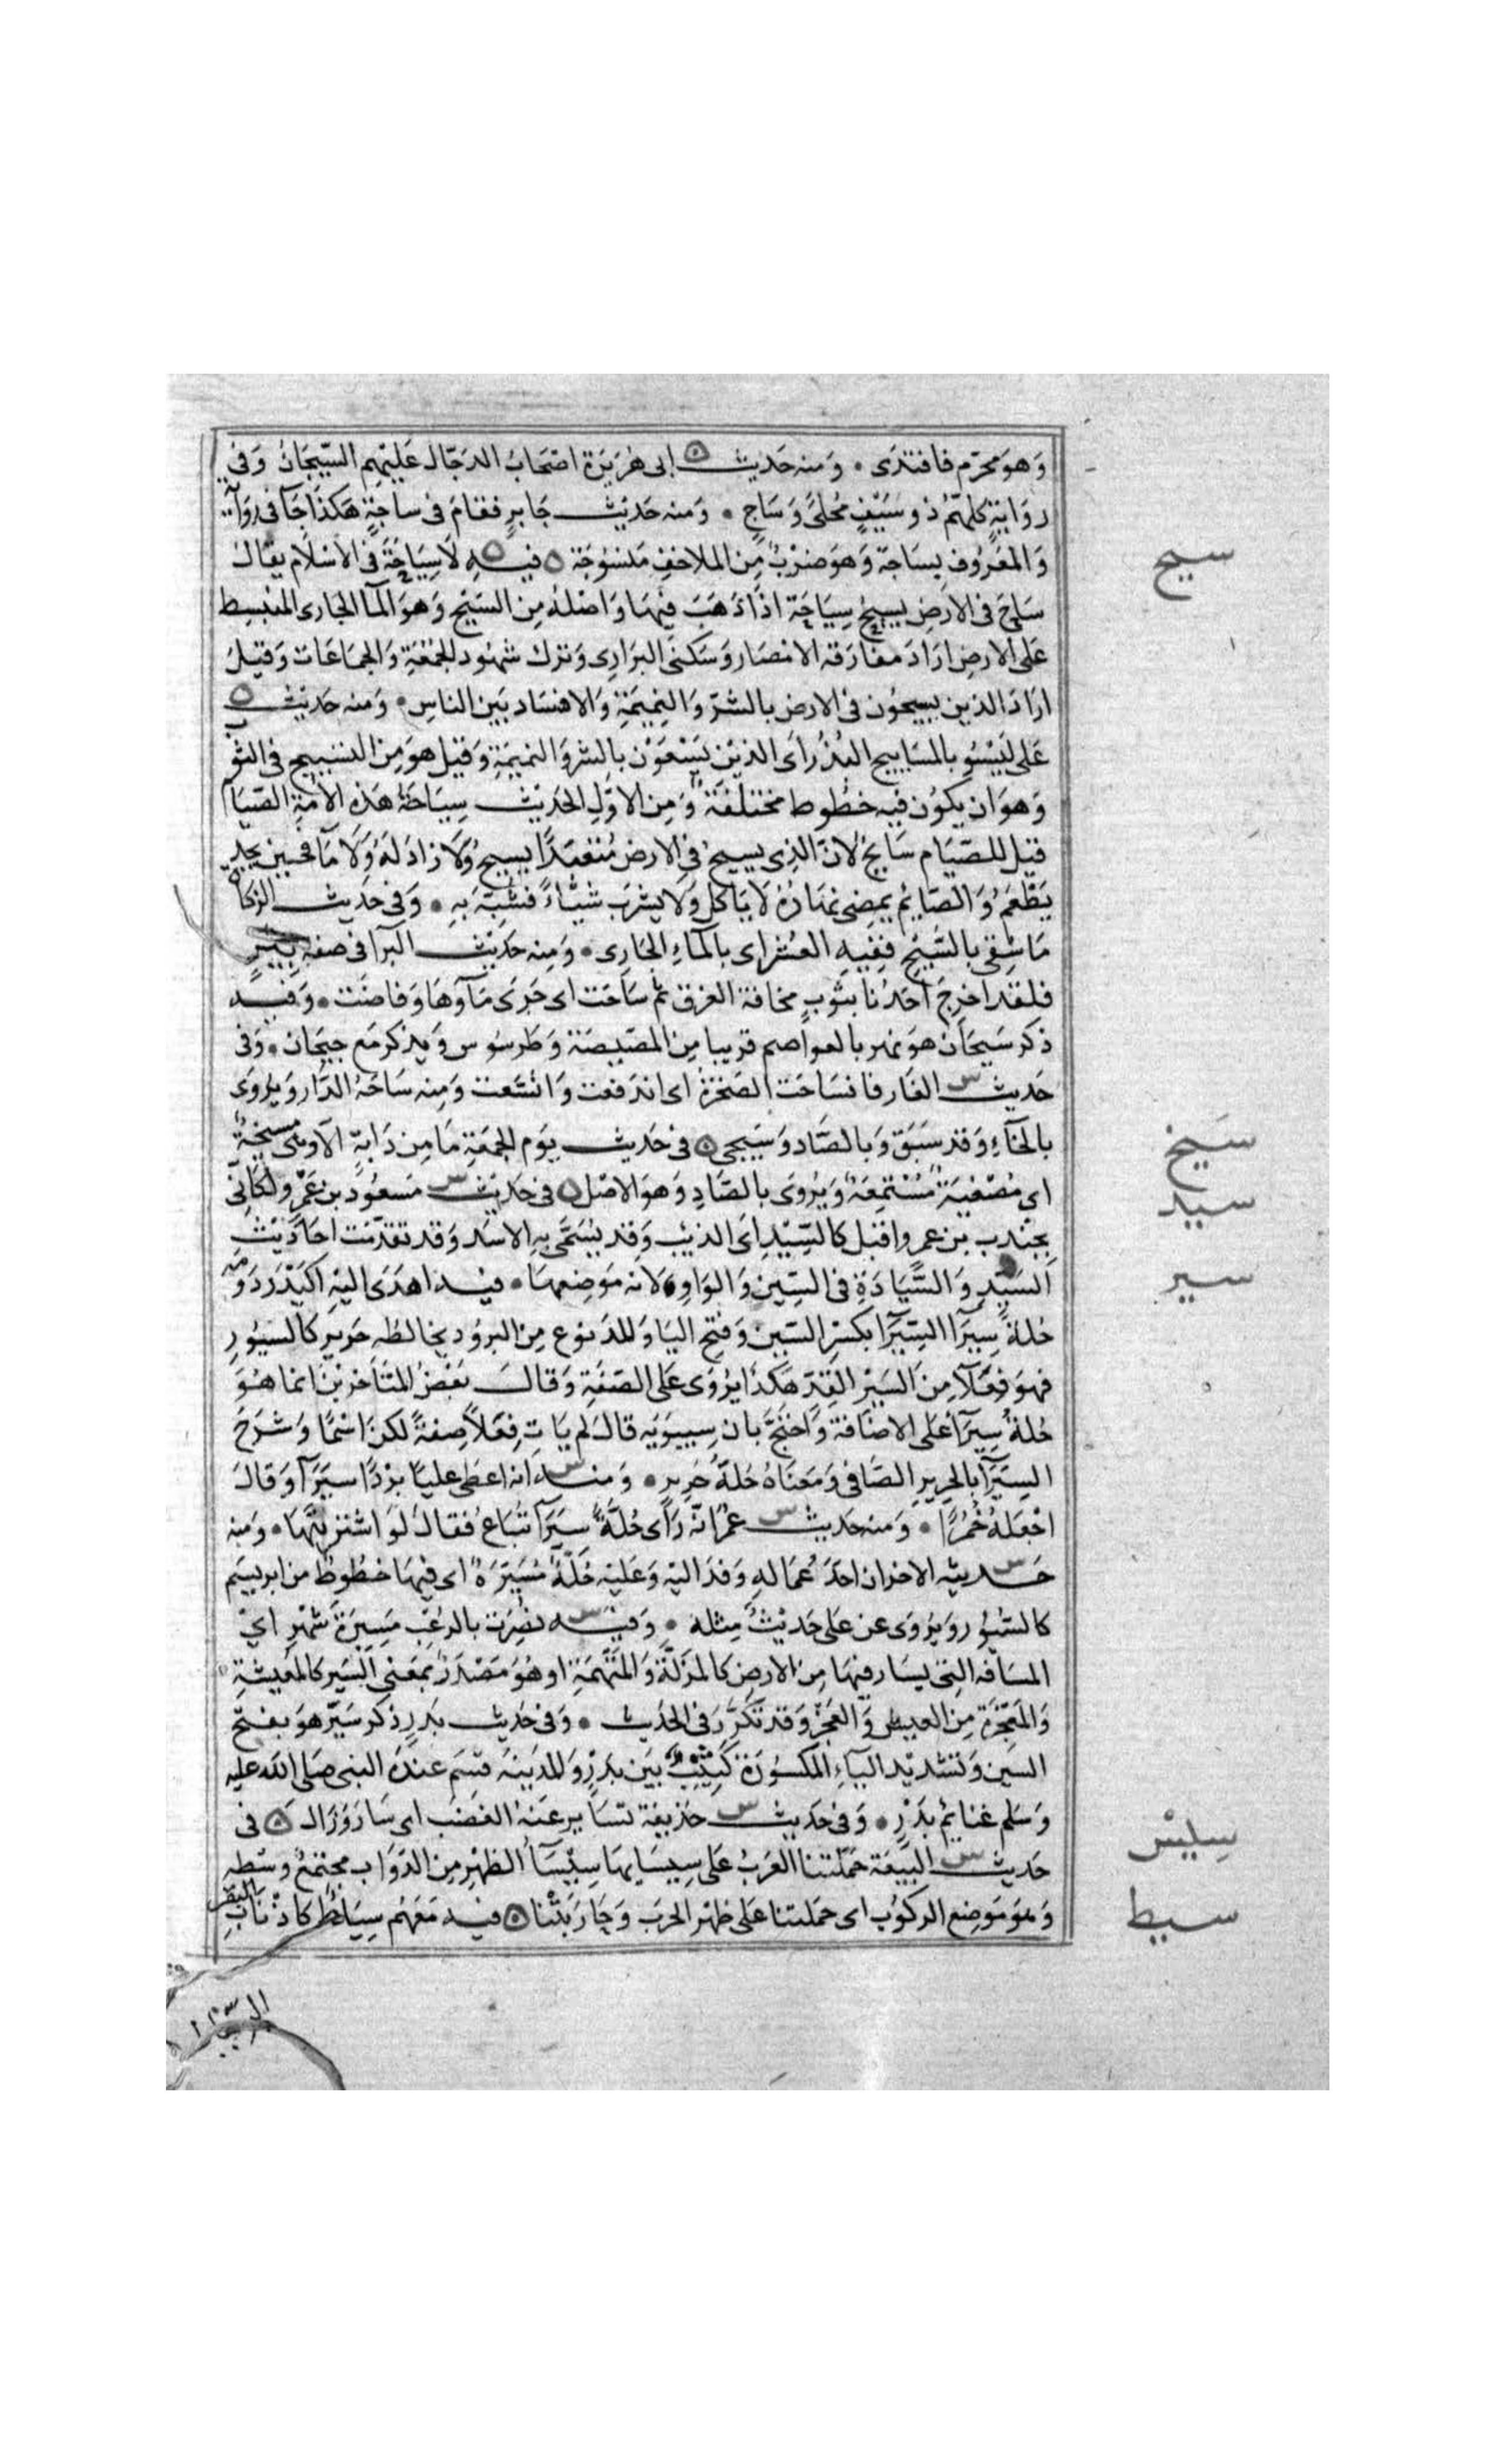 وَهوَ محرّم فافتدَى • وَمنه حَديث ابى هُرَيَرة اصْحَابُ الدجّال عَلَيْهم السّيجَانُ وَفى
روَايةٍ كلهمّ ذو سَيْفٍ مُحلىً وَسَاجٍ • وَمنه حَديث جَابرٍ فقامَ فى ساجَةٍ هَكذَا جَآ فى روَاية
وَالمعَرُوف بِسَاجة وَهوَ ضرْبٌ مِن الملاحفِ مَنسُوجَة فيهِ لاَ سِيَاحَةَ فى الاسْلام يقال
سَاحَ فى الاَرضِ يسيحُ سِيَاحَة اذَا ذَهَبَ فيهَا وَاصْلهُ مِن السَيْح وَهوَ المآ الجارى المنبسِط
عَلى الارضِ ارَادَ مفارَقه الامْصَار وَسَكنَى البرَارِى وَترك شهُود الجُمُعَةِ وَالجمَاعَات وَقيلَ
ارَادَ الذين يسيحُون فى الارض بالشرّ وَالنميمَةِ وَالافسَاد بَين الناسِ • وَمنه حَديث
عَلى ليَسُو بالمسَاييح البُذُر اى الذيْن يَسْعَوْن بالشر وَالنميمَةِ وَقيل هوَ مِن التسْييح فى الثوب
وَهوَ ان يكوُن فيه خطُوط مختلفَة وَمِن الاوّلِ الحَديث سِيَاحَة هَذه الامّةِ الصّيَام
قيل للصّيَام سَايحٌ لانّ الذِى يسيحُ فى الارض مُتعَبدًا يَسيحُ وَلاَ زادَ لهُ وَلاَ مآ فحين يجد
يَطْعَمُ وَالصّايمُ يمضِى نهَارهُ لاَ يَاكل وَلاَ يشرَب شيْاً فشبّهَ بهِ • وَفى حَديث الزكاة
مَا سُقِى بالسَّيْح فَفيهِ العُشر اى بالمآءِ الجَارِى • وَمِنه حَديْث البرآ فى صفه بير
فلقد اخرجَ احَدُنا بثوبٍ مخافة الغرق ثم سَاحَت اى جَرَى مَآوهَا وَفاضَت • وَفيه
ذكر سَيحَان هوَ نهر بالعوَاصم قريبا مِن المصّيصَة وَطَرسُوس وَيذكر مَع جيَحان • وَفى
حَديث الغَار فانسَاحَت الصَخرَة اى اندَفعت وَاتسَّعَت وَمنه سَاحَة الدّار وَيرْوَى
بالخآءِ وَقد سَبَقَ وَبالصّاد وَسَيجى فى حَديث يوَم الجمعَةِ مَا مِن دَابةٍ الاوهى مسيخة
اى مُصْغيَة مُسْتمعَة وَيُروَى بالصّادِ وَهوَ الاصْل فى حَديث مَسعُود بن عَمْرٍو لكَانّى
بجنْدب بن عمرٍو اقبَل كالسِّيْدِ اى الذيب وَقد يُسَمَّى بهِ الاسَد وَقد تقدّمَت احَاديث
السَيّدِ وَالسّيَادَةِ فى السِّين وَالوَاوِ لانه مَوضعهَا • فيه اهدَى اليْه اكيْدر دَومة
حُلةً سِيَرَا السِّيَرَآ بكسْرِ السّين وَفتح اليَا وَالمد نوع مِن البرُود يخالطُه حَرير كالسيُور
فهوَ فِعَلآ مِن السَيْرِ القِدّ هَكذَا يرُوى عَلى الصفَةِ وَقالَ بعَضُ المتَاخرين انما هُوَ
حُلةُ سِيَرَآ عَلى الاضَافة وَاحتَجَّ بان سِيبوَيه قالَ لم يَاتِ فِعَلآ صِفةً لكن اسْمًا وَشرَحَ
السِيَرَآ بالحريرِ الصّافى وَمَعنَاهُ حُلةَ حَرِيرٍ • وَمنه انه اعطَى عليّاً بُرْدًا سيَرَآ وَقالَ
اجْعَلهُ خُمُرًا • وَمنه حَديث عُمَر انّه رَاى حُلةً سِيَرَآ تُباعُ فقال لَو اشتريتَهَا • وَمنه
حَديثه الاخر ان احَدَ عُمّاله وَفدَ اليْه وَعَليْه حُلّة مُسَيّرَة اى فيهَا خطُوط من ابريسَم
كالسُّيُور وَيرْوَى عن عَلى حَديث مِثله • وَفيه نُصِرْت بالرعب مَسِيرَة شهْرٍ اى
المسَافه التِى يسَار فيهَا مِن الارض كالمزَلّةِ وَالمتهَمَةِ او هُوَ مَصْدَر بمعَنى السَير كالمعيشَةِ
وَالمعَجزَة مِن العيش وَالعَجْز وَقد تكَرّرَ فى الحَديث • وَفى حَديث بَدرٍ ذكر سَيّر هوَ بفتح
السّين وَتشديد اليآءِ المكسُورَة كَثيب بَين بَدرٍ وَالمدَينة قسَم عندَهُ النبى صَلى اللّه عليه
وَسَلم غنايمَ بَدْرٍ • وَفى حَديث حذيفة تسَايرَ عَنهُ الغَضب اى سَارَ وَزال فى
حَديث البَيعَة حَمَلتنا العَربُ عَلى سِيسَايهَا سِيْسَآ الظهْر مِن الدّوَاب مجتمَعُ وسَطه
وَهوَ مَوضِع الركوُب اى حَملتنا عَلى ظهر الحَرب وَحَارَبتْنا فيه مَعَهُم سِيَاطٌ كَاذْنَاب
البقر
سيح
سيخ
سيد
سير
سيس
سيط